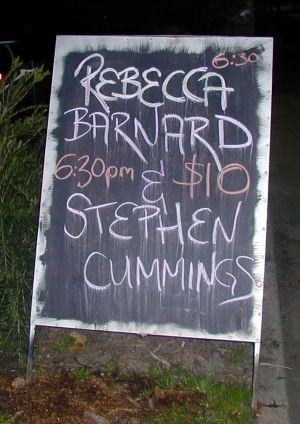 6:30
REBECCA
BARNARD
6:30pm & $10
STEPHEN
CUMMINGS